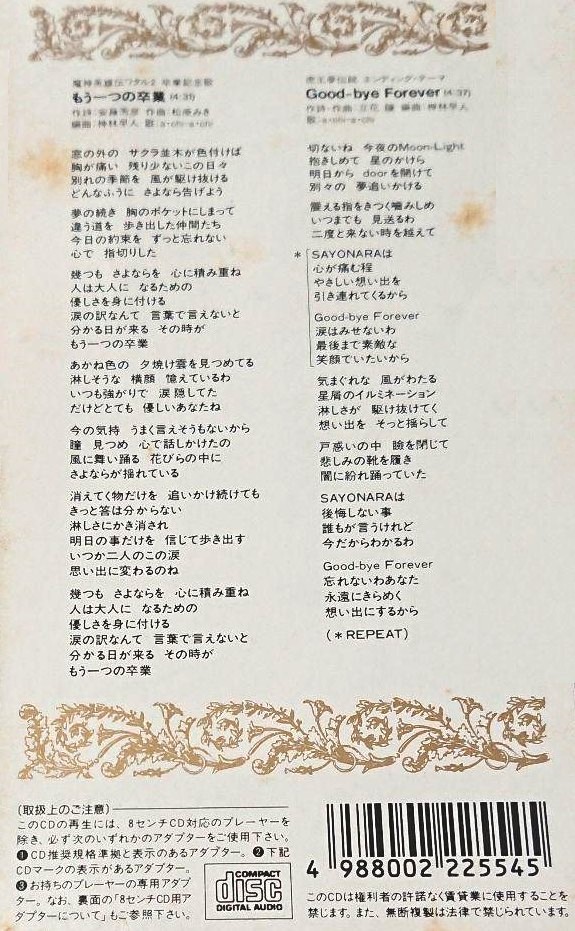 魔神英雄伝ワタル2 卒業記念歌
もう一つの卒業 (4:31)
作詩: 作曲: 松浦みき
編曲: 神林早人 歌: a・chi-a・chi
窓の外の サクラ並木が色付けば
胸が痛い 残り少ないこの日々
別れの季節を 風が駆け抜ける
どんなふうに さよなら告げよう
夢の続き 胸のポケットにしまって
違う道を 歩き出した仲間たち
今日の約束を ずっと忘れない
心で 指切りした
幾つも さよならを 心に積み重ね
人は大人に なるための
優しさを身に付ける
涙の訳なんて 言葉で言えないと
分かる日が来る その時が
もう一つの卒業
あかね色の 夕焼け雲を見つめてる
淋しそうな 横顔 憶えているわ
いつも強がりで 涙隠してた
だけどとても 優しいあなたね
今の気持 うまく言えそうもないから
瞳 見つめ 心で話しかけたの
風に舞い踊る 花びらの中に
さよならが揺れている
消えてく物だけを 追いかけ続けても
きっと答は分からない
淋しさにかき消され
明日の事だけを 信じて歩き出す
いつか二人のこの涙
思い出に変わるのね
幾つも さよならを 心に積み重ね
人は大人に なるための
優しさを身に付ける
涙の訳なんて 言葉で言えないと
分かる日が来る その時が
もう一つの卒業
虎王夢伝説 エンディング・テーマ
Good-bye Forever (4:37)
作詩・作曲: 立花 編曲: 神林早人
歌: a・chi-a・chi
切ないね 今夜のMoon-Light
抱きしめて 星のかけら
明日から doorを開けて
別々の 夢追いかける
震える指をきつく噛みしめ
いつまでも 見送るわ
二度と来ない時を越えて
* SAYONARAは
心が痛む程
やさしい想い出を
引き連れてくるから
Good-bye Forever
涙はみせないわ
最後まで素敵な
笑顔でいたいから
気まぐれな 風がわたる
星屑のイルミネーション
淋しさが 駆け抜けてく
想い出を そっと揺らして
戸惑いの中 瞼を閉じて
悲しみの靴を履き
闇に紛れ踊っていた
SAYONARAは
後悔しない事
誰もが言うけれど
今だからわかるわ
Good-bye Forever
忘れないわあなた
永遠にきらめく
想い出にするから
(*REPEAT)
(取扱上のご注意)
このCDの再生には、8センチCD対応のプレーヤーを
除き、必ず次のいずれかのアダプターをご使用下さい。
❶CD推奨規格準拠と表示のあるアダプター。❷下記
CDマークの表示があるアダプター。
❸お持ちのプレーヤーの専用アダプ
ター。なお、裏面の「8センチCD用ア
ダプターについて」もご参照下さい。
COMPACT
disc
DIGITAL AUDIO
4 988002 225545
このCDは権利者の許諾なく賃貸業に使用することを
禁じます。また、無断複製は法律で禁じられています。